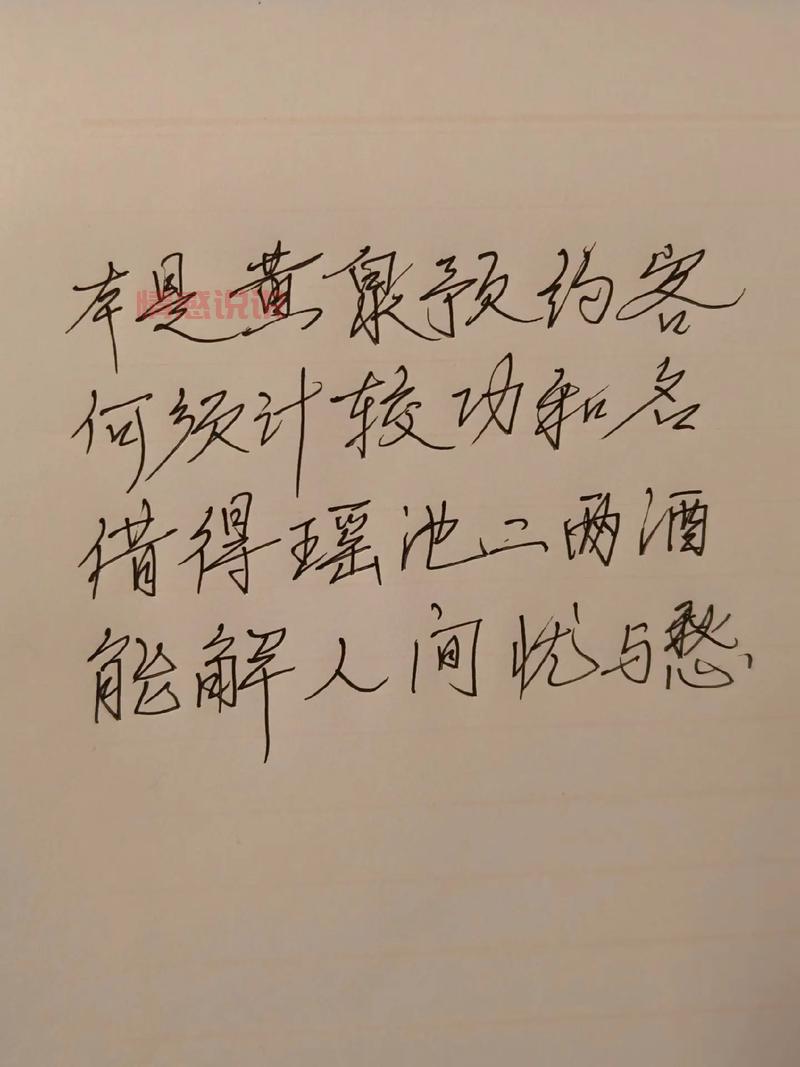 本是黄泉预约客
情感说说
何须计较功和名
借得瑶池二两酒
能解人间忧与愁